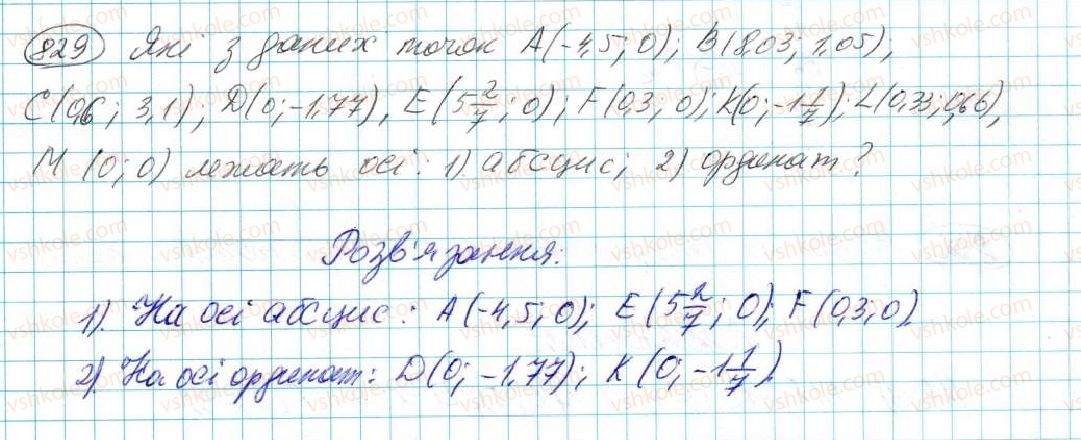 829 Які з даних точок A(-4,5; 0); B(8,03; 1,05);
C(0,6; 3,1); D(0; -1,77), E(5 2/7; 0); F(0,3; 0); K(0; -1 1/7); L(0,33; 0,66),
M (0; 0) лежать осі: 1) абсцис; 2) ординат?
Розв'язання:
1). На осі абсцис: A(-4,5; 0); E(5 2/7; 0); F(0,3; 0)
2). На осі ординат: D(0; -1,77); K(0; -1 1/7)